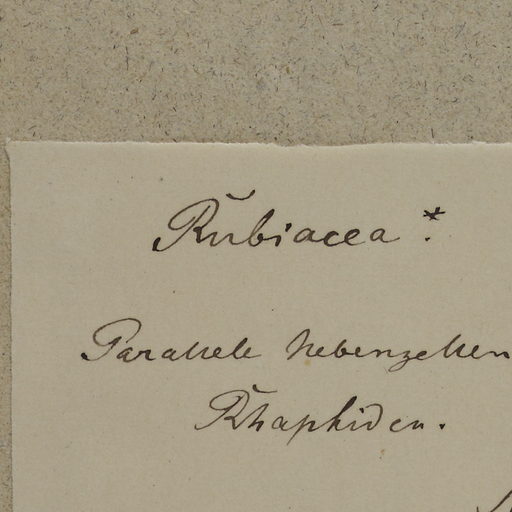 Rubiacea *.
Parallele Nebenzellen
Rhaphiden.